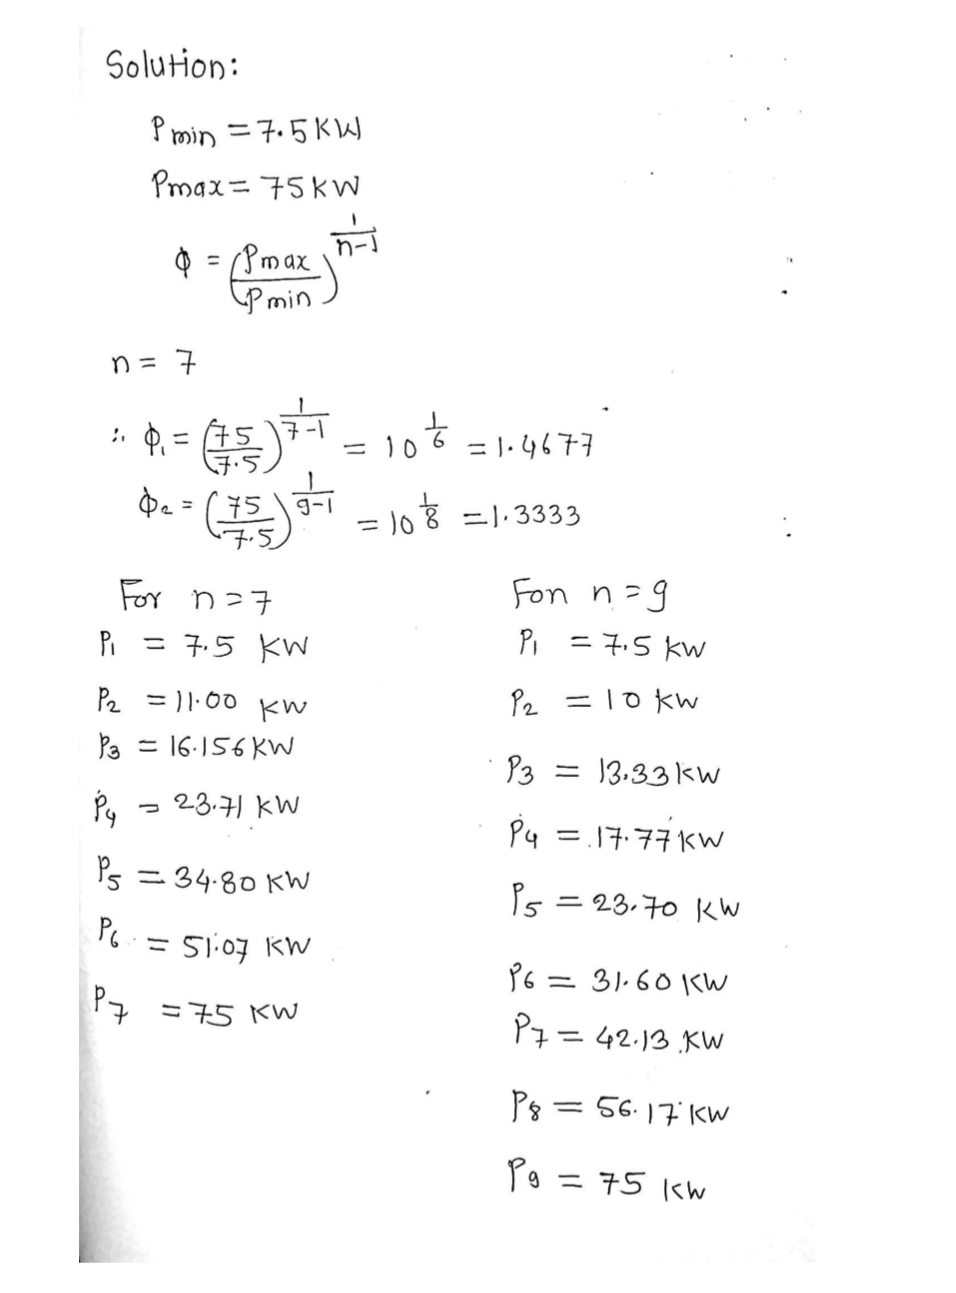 Solution:
Pmin = 7.5 KW
Pmax = 75 KW
ϕ = (Pmax/Pmin)^(1/(n-1))
n = 7
∴ ϕ₁ = (75/7.5)^(1/(7-1)) = 10^(1/6) = 1.4677
ϕ₂ = (75/7.5)^(1/(9-1)) = 10^(1/8) = 1.3333
For n = 7
P₁ = 7.5 KW
P₂ = 11.00 KW
P₃ = 16.156 KW
P₄ = 23.71 KW
P₅ = 34.80 KW
P₆ = 51.07 KW
P₇ = 75 KW
Fon n = 9
P₁ = 7.5 KW
P₂ = 10 KW
P₃ = 13.33 KW
P₄ = 17.77 KW
P₅ = 23.70 KW
P₆ = 31.60 KW
P₇ = 42.13 KW
P₈ = 56.17 KW
P₉ = 75 KW